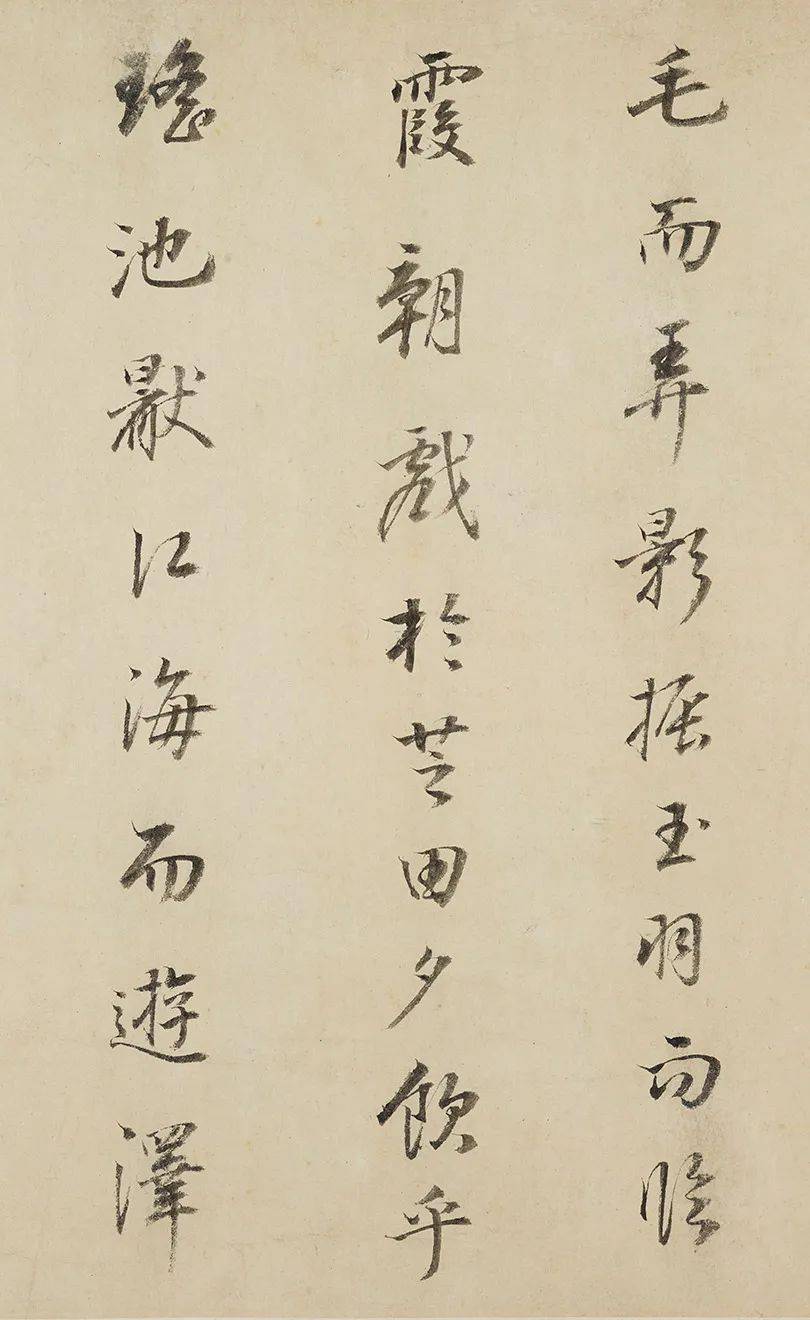 毛而弄影振玉羽而臨
霞朝戲於芝田夕飲乎
瑤池厭江海而遊澤